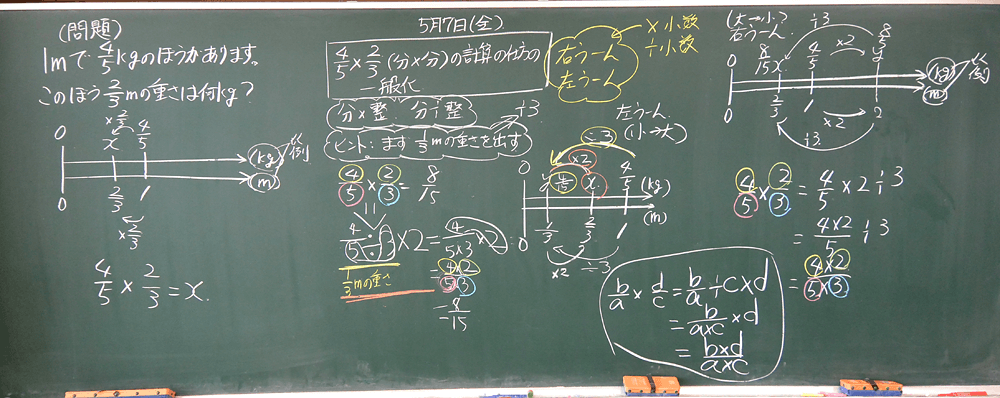 (問題)
1mで 4/5 kgのぼうがあります。
このぼう 2/3 mの重さは何kg?
×2/3
x 4/5
0
(kg)
(m)
比例
0
2/3 1
×2/3
4/5 × 2/3 = x.
5月7日(金)
4/5 × 2/3 (分×分)の計算の仕方の
一般化
分×整 分÷整
÷3
ヒント:まず 1/3 mの重さを出す
4/5 × 2/3 = 8/15
=
4/(5÷3) ×2 = 4/(5×3) ×2
1/3 mの重さ
= (4×2)/(5×3)
= 8/15
×小数
÷小数
右うーん
左うーん
左うーん
(小→大)
÷3
×2
0 y 4/15 x 4/5 (kg)
(m)
0 1/3 2/3 1
×2 ÷3
b/a × d/c = b/a ÷c×d
= b/(a×c) ×d
= (b×d)/(a×c)
(大→小)
右うーん
÷3
8/5
×2
0 8/15 x 4/5 y
(kg)
(m)
比例
0 2/3 1 2
×2
÷3
4/5 × 2/3 = 4/5 ×2÷3
= (4×2)/5 ÷3
= (4×2)/(5×3)